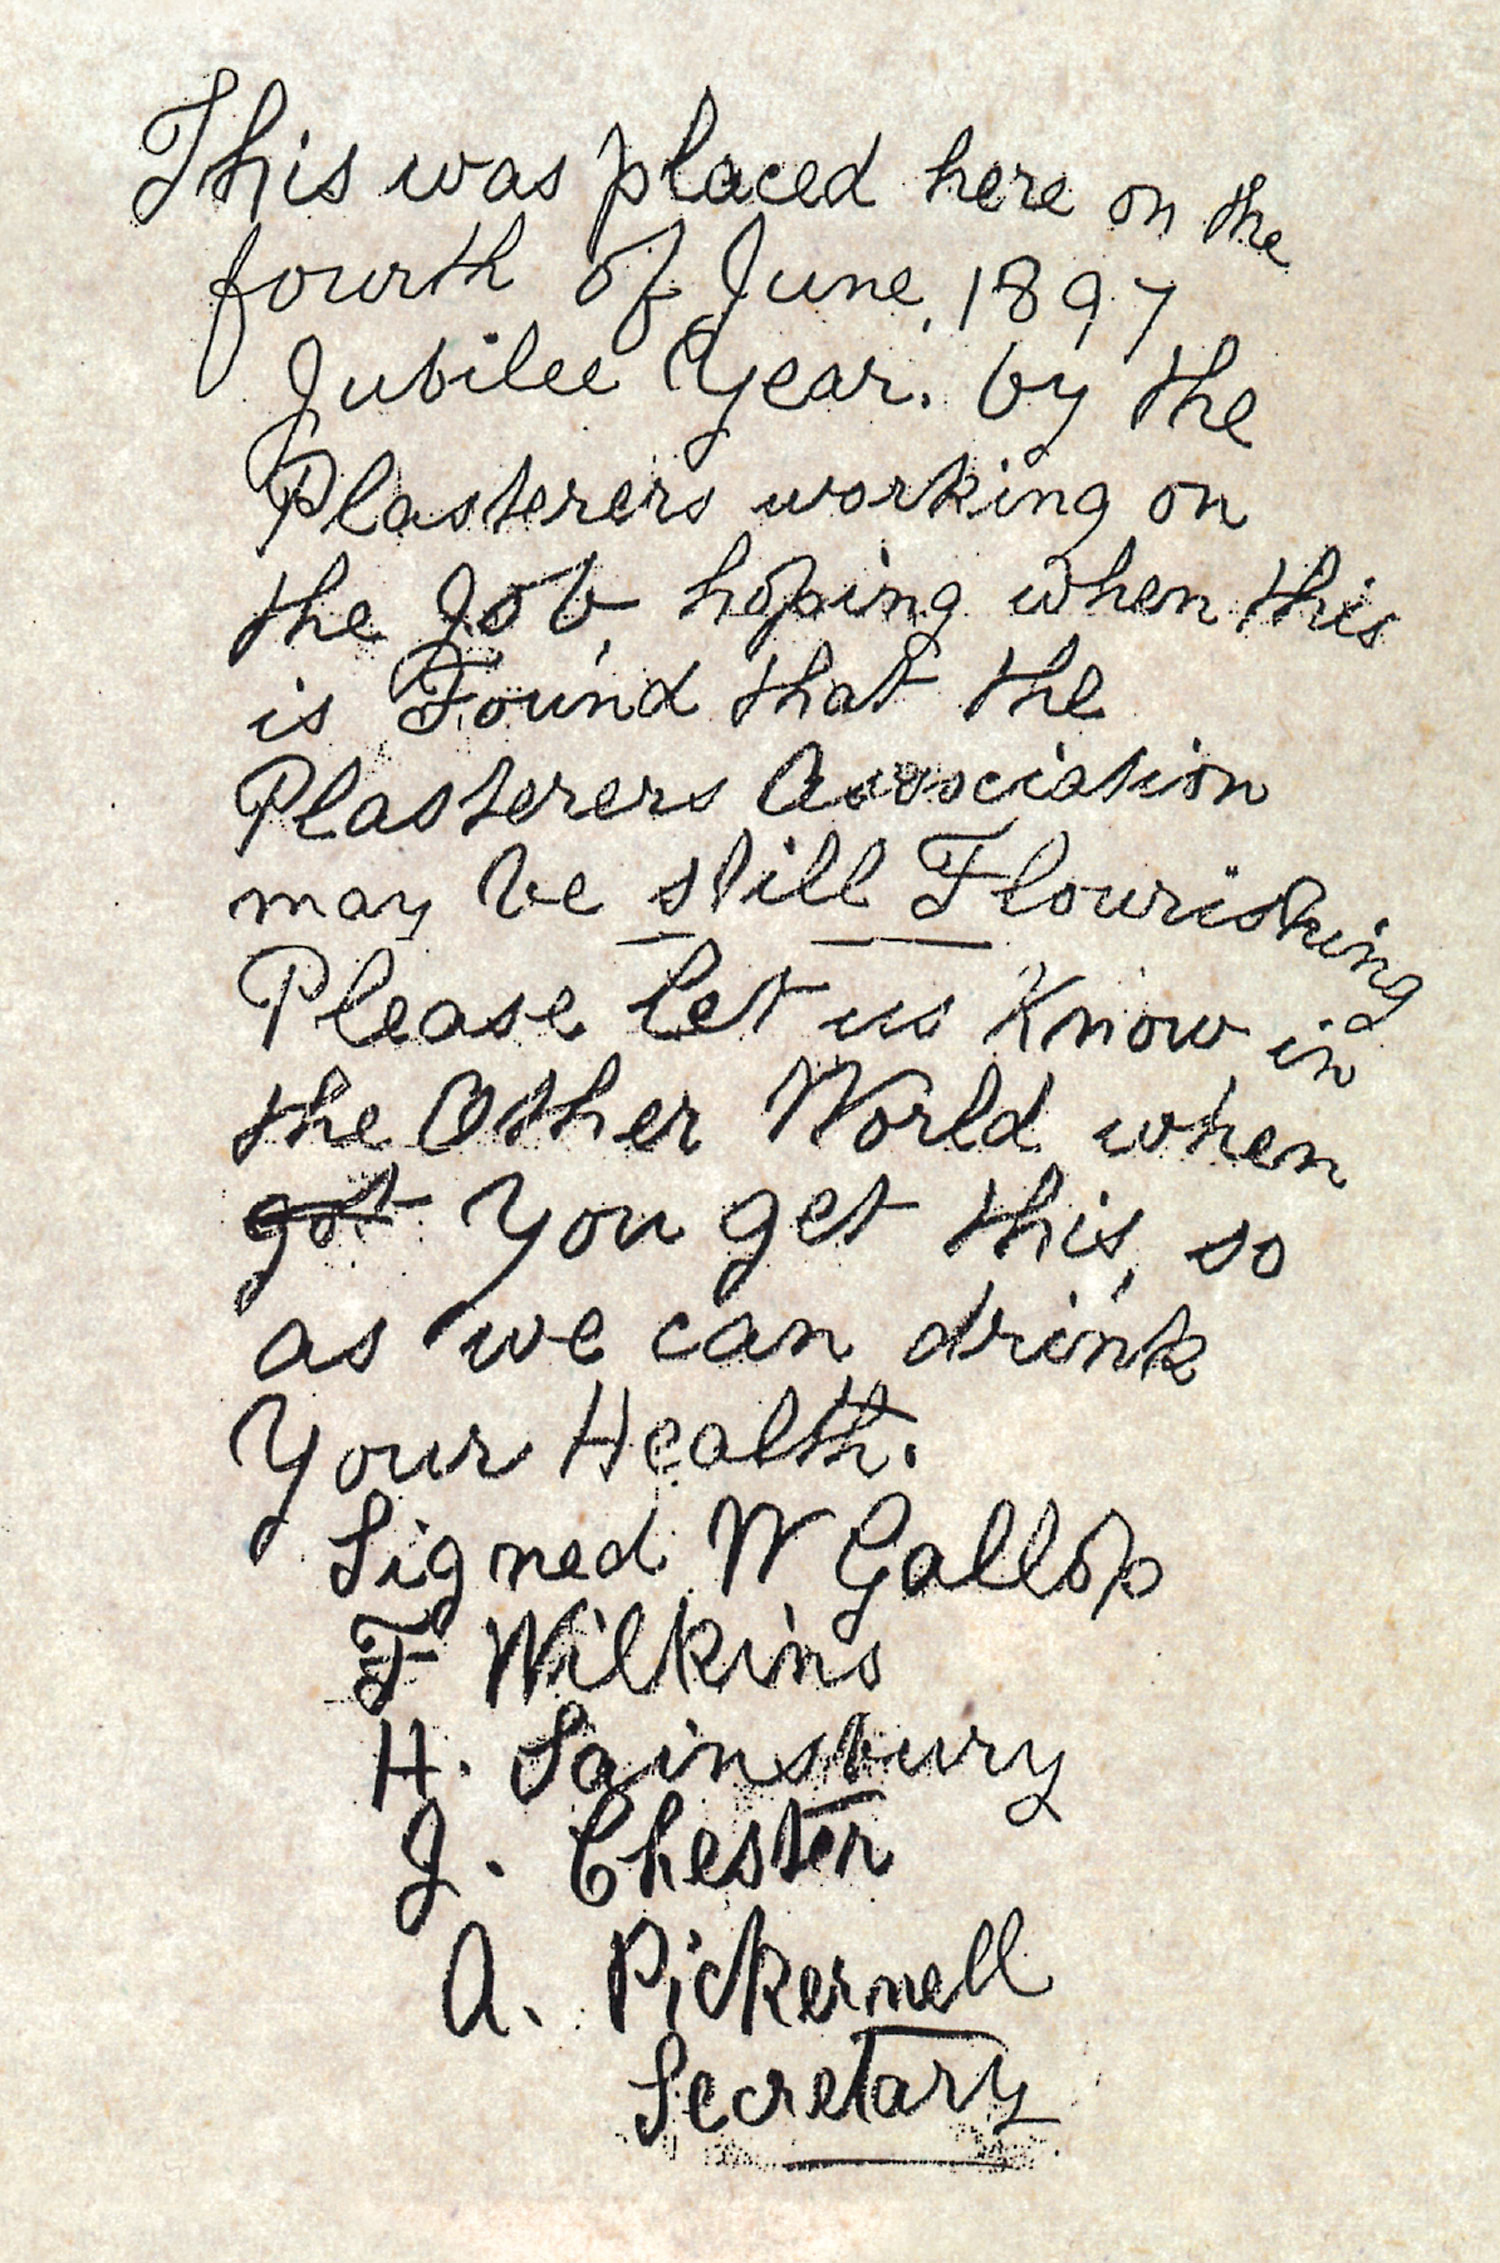 This was placed here on the
fourth of June, 1897
Jubilee Year. by the
Plasterers working on
the Job, hoping when this
is Found that the
Plasterers Association
may be still Flourishing
Please let us Know in
the Other World when
got You get this, so
as we can drink
Your Health.
Signed W Gallop
F Wilkins
H. Sainsbury
J. Chester
A. Pickernell
Secretary